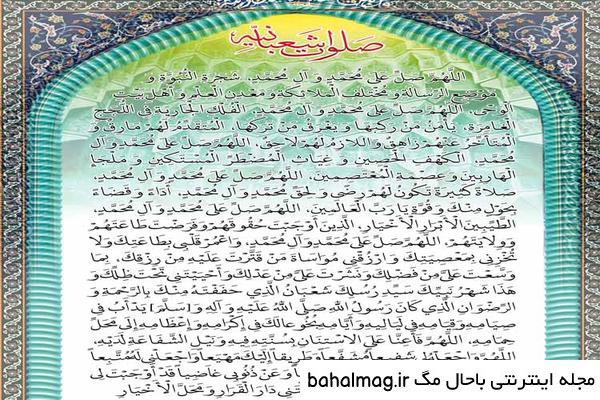 صلوات شعبانیه
اللَّهُمَّ صَلِّ عَلَى مُحَمَّدٍ وَ آلِ مُحَمَّدٍ، شَجَرَةِ النُّبُوَّةِ وَ
مَوْضِعِ الرِّسَالَةِ وَ مُخْتَلَفِ الْمَلَائِكَةِ وَ مَعْدِنِ الْعِلْمِ وَ أَهْلِ بَيْتِ
الْوَحْيِ. اللَّهُمَّ صَلِّ عَلَى مُحَمَّدٍ وَ آلِ مُحَمَّدٍ، الْفُلْكِ الْجَارِيَةِ فِي اللُّجَجِ
الْغَامِرَةِ، يَأْمَنُ مَنْ رَكِبَهَا وَ يَغْرَقُ مَنْ تَرَكَهَا، الْمُتَقَدِّمُ لَهُمْ مَارِقٌ وَ
الْمُتَأَخِّرُ عَنْهُمْ زَاهِقٌ وَ اللَّازِمُ لَهُمْ لَاحِقٌ. اللَّهُمَّ صَلِّ عَلَى مُحَمَّدٍ وَ آلِ
مُحَمَّدٍ، الْكَهْفِ الْحَصِينِ وَ غِيَاثِ الْمُضْطَرِّ الْمُسْتَكِينِ وَ مَلْجَإِ
الْهَارِبِينَ وَ عِصْمَةِ الْمُعْتَصِمِينَ. اللَّهُمَّ صَلِّ عَلَى مُحَمَّدٍ وَ آلِ مُحَمَّدٍ،
صَلَاةً كَثِيرَةً تَكُونُ لَهُمْ رِضًى وَ لِحَقِّ مُحَمَّدٍ وَ آلِ مُحَمَّدٍ، أَدَاءً وَ قَضَاءً
بِحَوْلٍ مِنْكَ وَ قُوَّةٍ يَا رَبَّ الْعَالَمِينَ. اللَّهُمَّ صَلِّ عَلَى مُحَمَّدٍ وَ آلِ مُحَمَّدٍ،
الطَّيِّبِينَ الْأَبْرَارِ الْأَخْيَارِ، الَّذِينَ أَوْجَبْتَ حُقُوقَهُمْ وَ فَرَضْتَ طَاعَتَهُمْ
وَ وِلَايَتَهُمْ. اللَّهُمَّ صَلِّ عَلَى مُحَمَّدٍ وَ آلِ مُحَمَّدٍ، وَ اعْمُرْ قَلْبِي بِطَاعَتِكَ وَ لَا
تُخْزِنِي بِمَعْصِيَتِكَ وَ ارْزُقْنِي مُوَاسَاةَ مَنْ قَتَّرْتَ عَلَيْهِ مِنْ رِزْقِكَ، بِمَا
وَسَّعْتَ عَلَيَّ مِنْ فَضْلِكَ وَ نَشَرْتَ عَلَيَّ مِنْ عَدْلِكَ وَ أَحْيَيْتَنِي تَحْتَ ظِلِّكَ وَ
هَذَا شَهْرُ نَبِيِّكَ سَيِّدِ رُسُلِكَ شَعْبَانُ الَّذِي حَفَفْتَهُ مِنْكَ بِالرَّحْمَةِ وَ
الرِّضْوَانِ الَّذِي كَانَ رَسُولُ اللَّهِ صَلَّى اللَّهُ عَلَيْهِ وَ آلِهِ وَ [سَلَّمَ] يَدْأَبُ فِي
صِيَامِهِ وَ قِيَامِهِ فِي لَيَالِيهِ وَ أَيَّامِهِ بُخُوعاً لَكَ فِي إِكْرَامِهِ وَ إِعْظَامِهِ إِلَى مَحَلِّ
حِمَامِهِ. اللَّهُمَّ فَأَعِنَّا عَلَى الِاسْتِنَانِ بِسُنَّتِهِ فِيهِ وَ نَيْلِ الشَّفَاعَةِ لَدَيْهِ.
اللَّهُمَّ وَ اجْعَلْهُ لِي شَفِيعاً مُشَفَّعاً وَ طَرِيقاً إِلَيْكَ مَهْيَعاً وَ اجْعَلْنِي لَهُ مُتَّبِعاً
وَ عَنْ ذُنُوبِي غَاضِياً قَدْ أَوْجَبْتَ لِي
دَارَ الْقَرَارِ وَ مَحَلَّ الْأَخْيَارِ
مجله اینترنتی باحال مگ bahalmag.ir